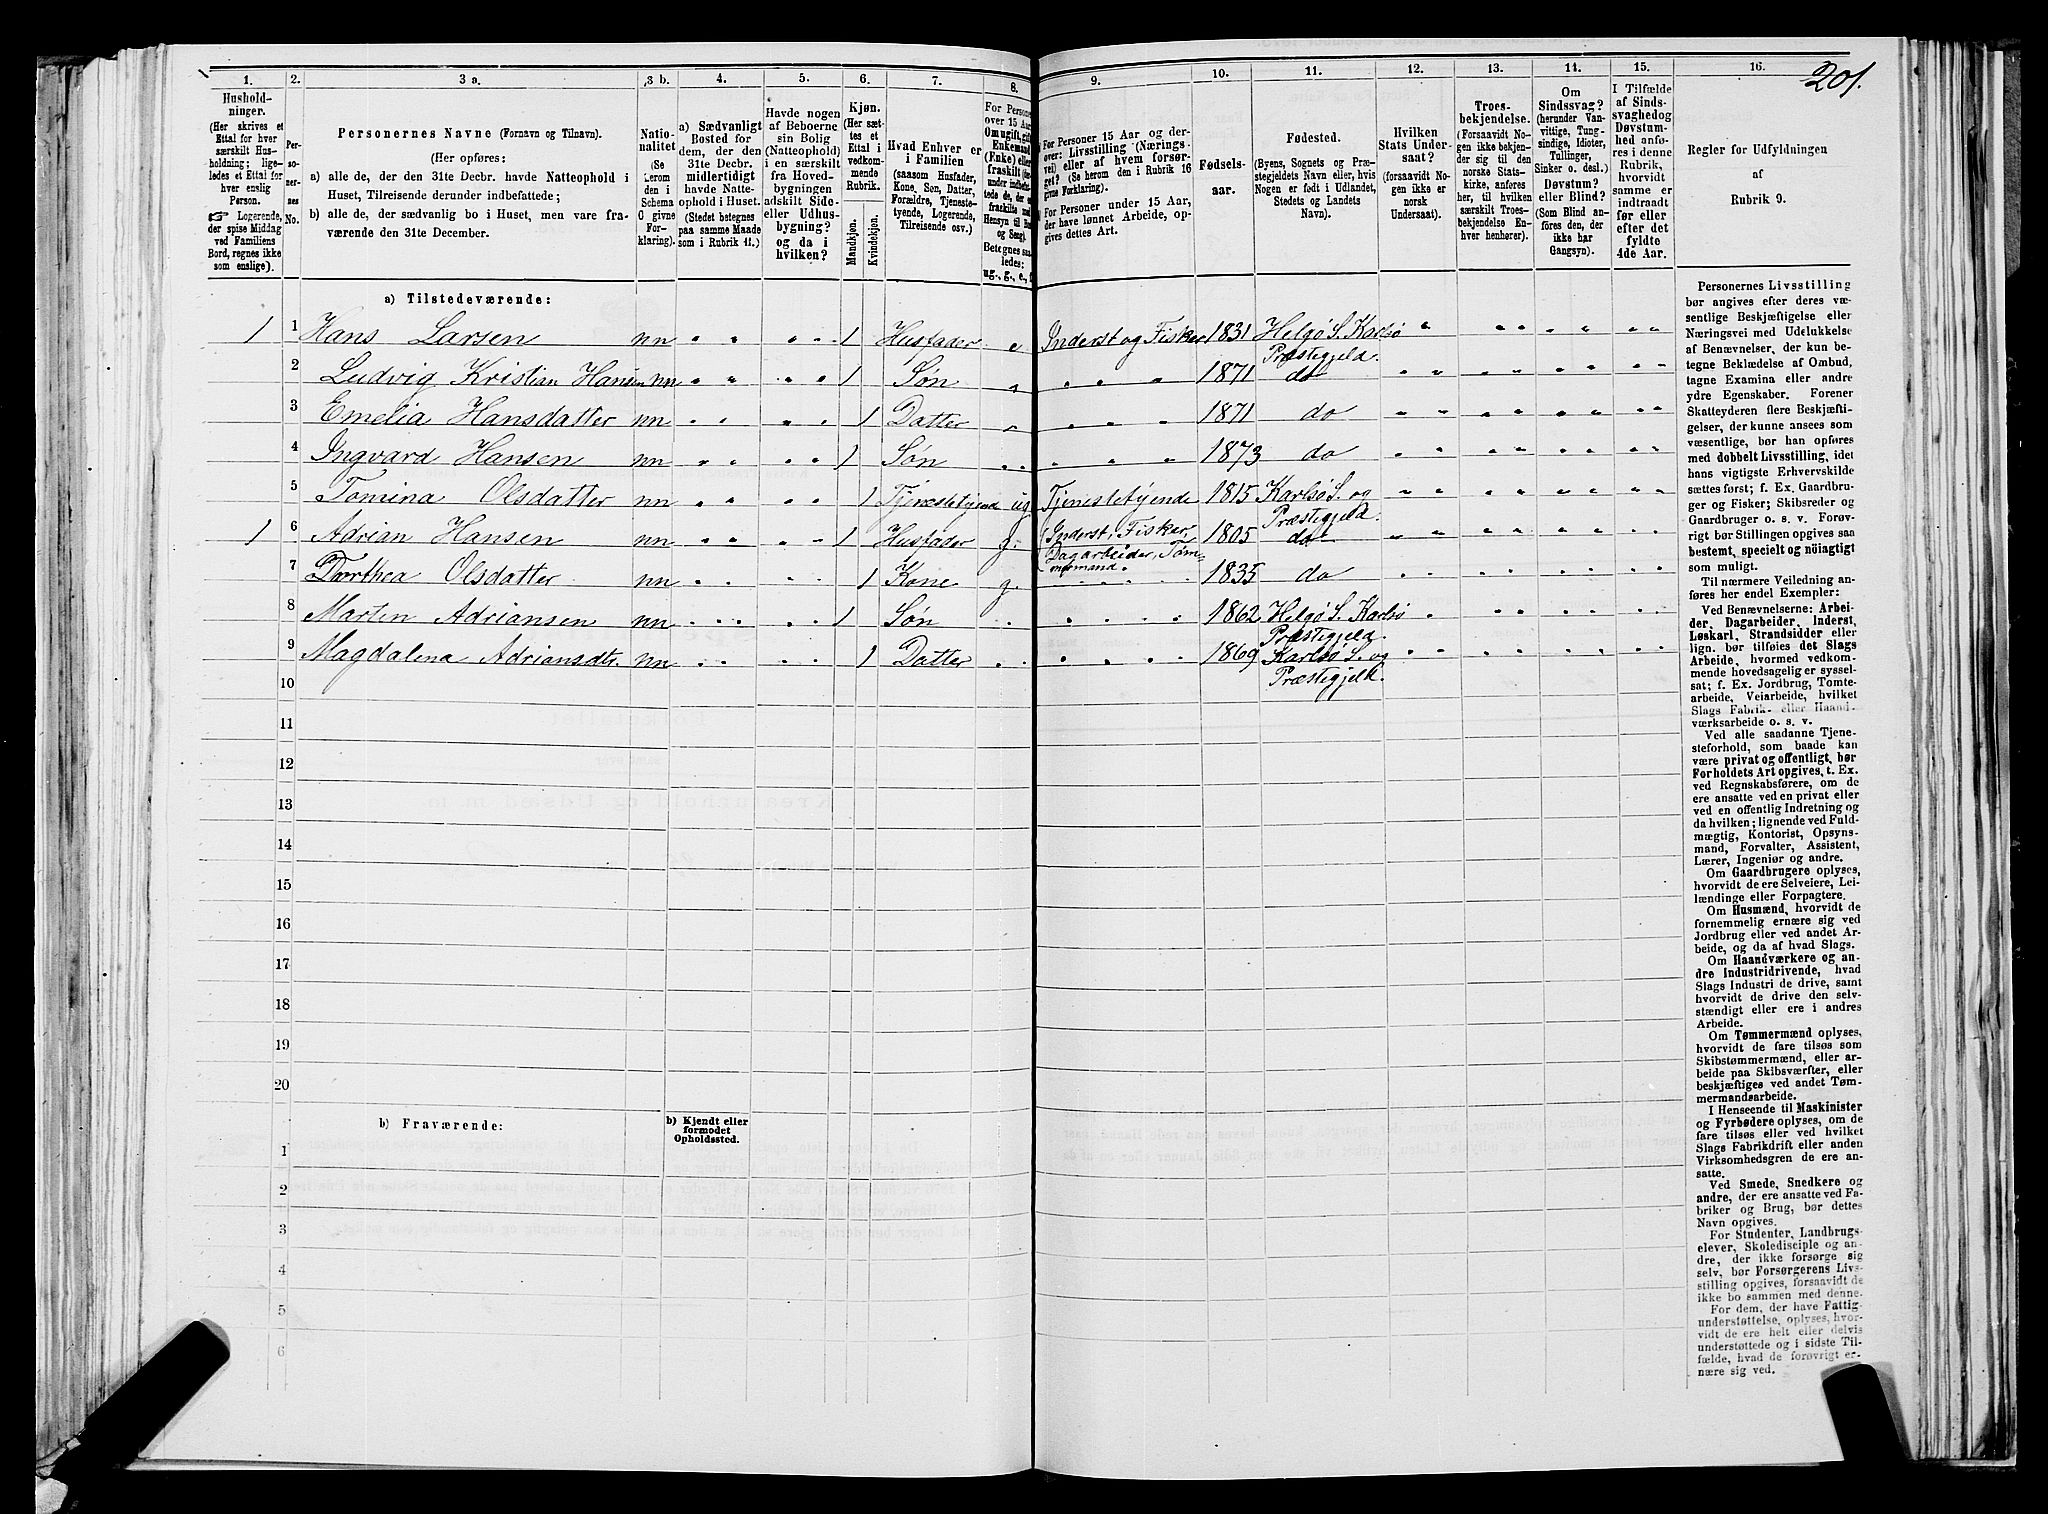 201.
1. 2. 3 a. 3 b. 4. 5. 6. 7. 8. 9. 10. 11. 12. 13. 14. 15. 16.
Hushold-
ninger.
(Her skrives et
Ettal for hver
særskilt Hus-
holdning; lige-
ledes et Ettal for
hver enslig
Person.
☞ Logerende,
der spise Middag
ved Familiens
Bord, regnes ikke
som enslige).
Per-
so-
ner-
nes
No.
Personernes Navne (Fornavn og Tilnavn).
(Her opføres:
a) alle de, der den 31te Decbr. havde Natteophold i
Huset, Tilreisende derunder indbefattede;
b) alle de, der sædvanlig bo i Huset, men vare fra-
værende den 31te December.
Natio-
nalitet
(Se
Lerom
den i
Schema
O givne
For-
klaring).
a) Sædvanligt
Bosted for
dem, der den
31te Decbr.
midlertidigt
havde Natte-
ophold i Huset.
(Stedet betegnes
paa samme Maade
som i Rubrik 11.)
Havde nogen
af Beboerne
sin Bolig
(Natteophold)
i en særskilt
fra Hoved-
bygningen
adskilt Side-
eller Udhus-
bygning?
og da i
hvilken?
Kjøn.
(Her sæt-
tes et
Ettal i
vedkom-
mende
Rubrik.
Mandkjøn.
Kvindekjøn.
Hvad Enhver er
i Familien
(saasom Husfader,
Kone, Søn, Datter,
Forældre, Tjeneste-
tyende, Logerende,
Tilreisende osv.)
For Personer
over 15 Aar:
Om ugift, gift,
Enkemand
(Enke) eller
fraskilt
Betegnes saa-
ledes:
ug., g., e., f.
For Personer 15 Aar og der-
over: Livsstilling (Nærings-
vei) eller af hvem forsør-
get? (Se herom den i Rubrik 16
givne Forklaring).
For Personer under 15 Aar,
der have lønnet Arbeide, op-
gives dettes Art.
Fødsels-
aar.
Fødested.
(Byens, Sognets og Præ-
stegjeldets Navn eller, hvis
Nogen er født i Udlandet,
Stedets og Landets
Navn).
Hvilken
Stats Under-
saat?
(forsaavidt No-
gen ikke er
norsk
Undersaat).
Troes-
bekjendelse.
(Forsaavidt No-
gen ikke bekjen-
der sig til den
norske Stats-
kirke, anføres
her, til hvilken
særskilt Troes-
bekjendelse En-
hver henhører).
Om
Sindssvag?
(herunder Van-
vittige, Tung-
sindige, Idioter,
Tullinger,
Sinker o. desl.)
Døvstum?
eller Blind?
(Som Blind an-
føres den, der
ikke har
Gangsyn).
I Tilfælde
af Sinds-
svaghed og
Døvstum-
hed anfø-
res i denne
Rubrik,
hvorvidt
samme er
indtraadt
før eller
efter det
fyldte
4de Aar.
Regler for Udfyldningen
af
Rubrik 9.
a) Tilstedeværende:
1 1 Hans Larsen nn " " " " 1 Husfader e Inderst og Fisker 1831 Helgø S. Karlsø
Præstegjeld.
2 Ludvig Kristian Hansen nn " " " " 1 Søn " " " " 1871 do
3 Emelia Hansdatter nn " " " " 1 Datter " " " " 1871 do
4 Ingvard Hansen nn " " " " 1 Søn " " " " " 1873 do
5 Tomina Olsdatter nn " " " " 1 Tjenestetyende ug Tjenestetyende 1815 Karlsø S. og
Præstegjeld.
1 6 Adrian Hansen nn " " " " 1 Husfader g. Inderst, Fisker, 1805 do
Dagarbeider, Tøm-
mermand.
7 Dorthea Olsdatter nn " " " " 1 Kone g. " " " " 1835 do
8 Martin Adriansen nn " " " " 1 Søn " " " " " 1862 Helgø S. Karlsø
Præstegjeld.
9 Magdalena Adriansdtr. nn " " " " 1 Datter " " " " " 1869 Karlsø S. og
Præstegjeld.
10
11
12
13
14
15
16
17
18
19
20
b) Fraværende:
b) Kjendt eller
formodet
Opholdssted.
1
2
3
4
5
6
Personernes Livsstilling
bør angives efter deres væ-
sentlige Beskjæftigelse eller
Næringsvei med Udelukkelse
af Benævnelser, der kun be-
tegne Beklædelse af Ombud,
tagne Examina eller andre
ydre Egenskaber. Forener
Skatteyderen flere Beskjæfti-
gelser, der kunne ansees som
væsentlige, bør han opføres
med dobbelt Livsstilling, idet
hans vigtigste Erhvervskilde
sættes først; f. Ex. Gaardbru-
ger og Fisker; Skibsreder og
Gaardbruger o. s. v. Forøv-
rigt bør Stillingen opgives saa
bestemt, specielt og nøiagtigt
som muligt.
Til nærmere Veiledning an-
føres her endel Exempler:
Ved Benævnelserne: Arbei-
der, Dagarbeider, Inderst,
Løskarl, Strandsidder eller
lign. bør tilføies det Slags
Arbeide, hvormed vedkom-
mende hovedsagelig er syssel-
sat; f. Ex. Jordbrug, Tomte-
arbeide, Veiarbeide, hvilket
Slags Fabrik- eller Haand-
værksarbeide o. s. v.
Ved alle saadanne Tjene-
steforhold, som baade kan
være privat og offentligt, bør
Forholdets Art opgives, t. Ex.
ved Regnskabsførere, om de
ere ansatte ved en privat eller
ved en offentlig Indretning og
da hvilken; lignende ved Fuld-
mægtig, Kontorist, Opsyns-
mand, Forvalter, Assistent,
Lærer, Ingeniør og andre.
Om Gaardbrugere oplyses,
hvorvidt de ere Selveiere, Lei-
lændinge eller Forpagtere.
Om Husmænd, hvorvidt de
fornemmelig ernære sig ved
Jordbrug eller ved andet Ar-
beide, og da af hvad Slags.
Om Haandværkere og an-
dre Industridrivende, hvad
Slags Industri de drive, samt
hvorvidt de drive den selv-
stændigt eller ere i andres
Arbeide.
Om Tømmermænd oplyses,
hvorvidt de fare tilsøs som
Skibstømmermænd, eller ar-
beide paa Skibsværfter, eller
beskjæftiges ved andet Tøm-
mermandsarbeide.
I Henseende til Maskinister
og Fyrbødere oplyses, om de
fare tilsøs eller ved hvilket
Slags Fabrikdrift eller anden
Virksomhedsgren de ere an-
satte.
Ved Smede, Snedkere og
andre, der ere ansatte ved Fa-
briker og Brug, bør dettes
Navn opgives.
For Studenter, Landbrugs-
elever, Skoledisciple og an-
dre, der ikke forsørge sig
selv, bør Forsørgerens Livs-
stilling opgives, forsaavidt de
ikke bo sammen med denne.
For dem, der have Fattig-
understøttelse, oplyses, hvor-
vidt de ere helt eller delvis
understøttede og i sidste Til-
fælde, hvad de forøvrigt er-
nære sig ved.